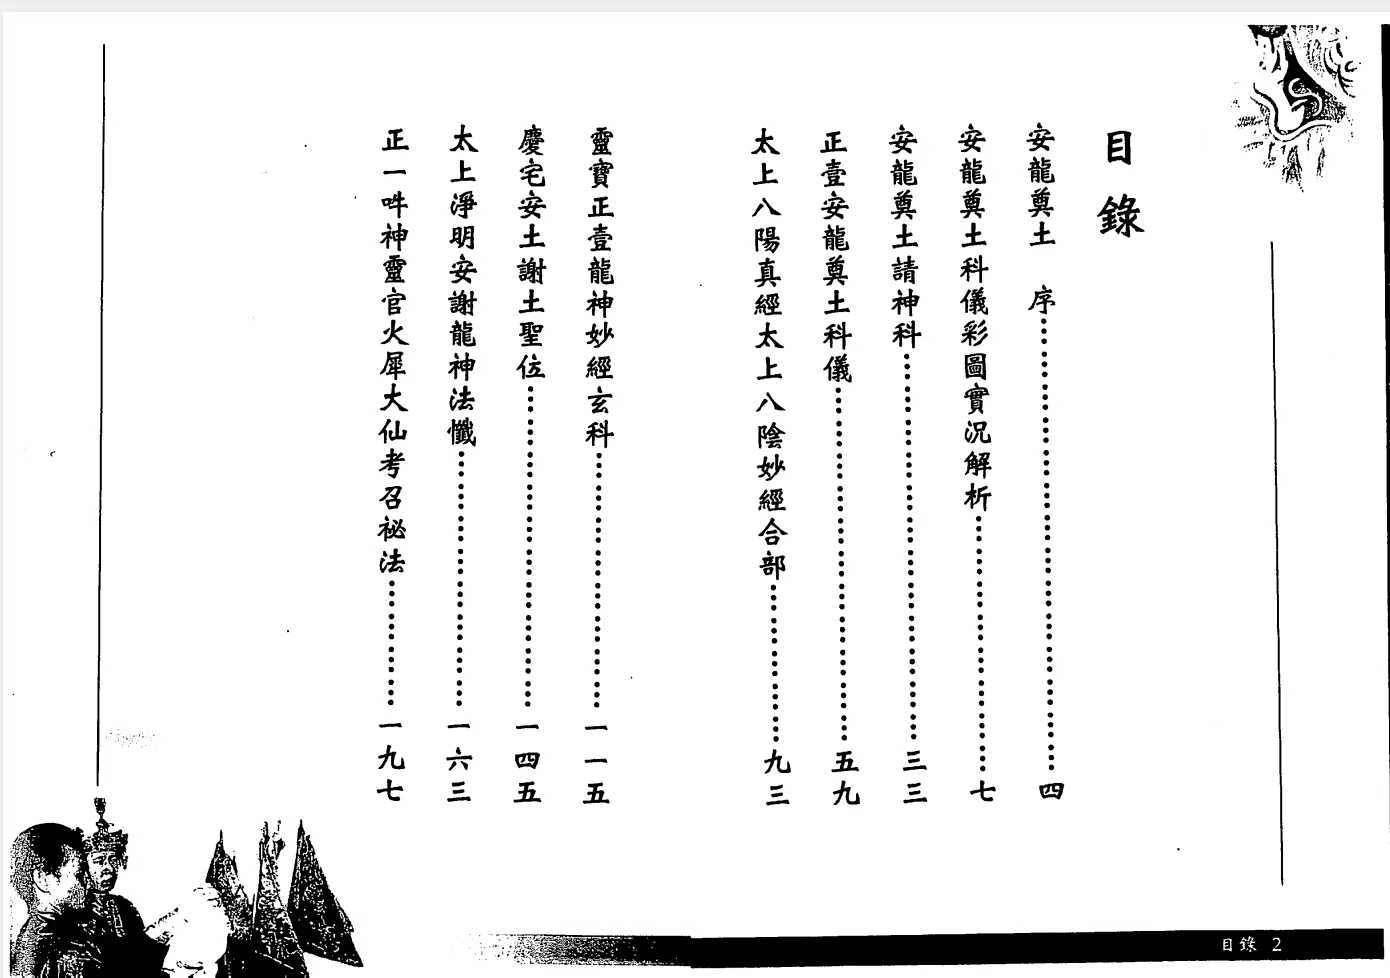 目錄
安龍奠土　序……………………四
安龍奠土科儀彩圖實況解析……………………七
安龍奠土請神科……………………三三
正壹安龍奠土科儀……………………五九
太上八陽真經太上八陰妙經合部……………………九三
靈寶正壹龍神妙經玄科……………………一一五
慶宅安土謝土聖位……………………一四五
太上淨明安謝龍神法懺……………………一六三
正一吽神靈官火犀大仙考召祕法……………………一九七
目錄 2